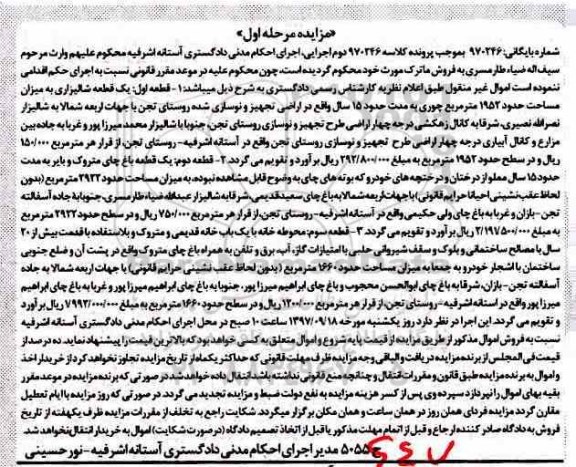 «مزایده مرحله اول»
شماره بایگانی: ۹۷۰۲۴۶ بموجب پرونده کلاسه ۹۷۰۲۴۶ دوم اجرایی، اجرای احکام مدنی دادگستری آستانه اشرفیه محکوم علیهم وراث مرحوم
سیف اله ضیاء ظار مسری به فروش ماترک مورث خود محکوم گردیده است، چون محکوم علیه در موعد مقرر قانونی نسبت به اجرای حکم اقدامی
ننموده است اموال غیر منقول طبق اعلام نظریه کارشناس رسمی دادگستری به شرح ذیل میباشد: ۱- قطعه اول: یک قطعه شالیزاری به میزان
مساحت حدود ۱۹۵۲ مترمربع چوری به مدت حدود ۱۵ سال واقع در اراضی تجهیز و نوسازی شده روستای تجن با جهات اربعه شمالا به شالیزار
نصراله نصیری، شرقا به کانال زهکشی درجه چهار اراضی طرح تجهیز و نوسازی روستای تجن جنوبا با شالیزار محمد میرزا پور و غربا به جاده بین
مزارع و کانال آبیاری درجه چهار اراضی طرح تجهیز و نوسازی روستای تجن واقع در آستانه اشرفیه - روستای تجن، از قرار هر مترمربع ۱۵۰/۰۰۰
ریال و در سطح حدود ۱۹۵۲ مترمربع به مبلغ ۲۹۲/۸۰۰/۰۰۰ ریال برآورد و تقویم می گردد. ۲- قطعه دوم: یک قطعه باغ چای متروک و بایر به مدت
حدود ۱۵ سال مملو از درختان و درختچه های خودرو که بوته های چای به وضوح قابل مشاهده نبوده، به میزان مساحت حدود ۲۹۲۲ مترمربع (بدون
لحاظ عقب نشینی احیانا حرایم قانونی) با جهات اربعه شمالا به باغ چای سعید قدیمی، شرقا به شالیزار عبداله ضیاء ظار مسری، جنوبا به جاده آسفالته
تجن - بازان و غربا به باغ چای ولی حکیمی واقع در آستانه اشرفیه - روستای تجن، از قرار هر مترمربع ۷۵۰/۰۰۰ ریال و در سطح حدود ۲۹۲۲ مترمربع
به مبلغ ۲/۱۹۷۵۰۰/۰۰۰ ریال برآورد و تقویم می گردد. ۳- قطعه سوم: محوطه خانه با یک باب خانه قدیمی و متروک و بلااستفاده با قدمت بیش از ۲۰
سال با مصالح ساختمانی و بلوک و سقف شیروانی حلبی با امتیازات گاز، آب، برق و تلفن به همراه باغ چای متروک واقع در پشت آن و ضلع جنوبی
ساختمان با اشجار خودرو به جمعا به میزان مساحت حدود ۱۶۶۰ مترمربع (بدون لحاظ عقب نشینی حرایم قانونی) با جهات اربعه شمالا به جاده
آسفالته تجن - بازان، شرقا به باغ چای ابوالحسن محجوب و باغ چای ابراهیم میرزا پور، جنوبا به باغ چای ابراهیم میرزا پور و غربا به باغ چای ابراهیم
میرزا پور واقع در آستانه اشرفیه - روستای تجن، از قرار هر مترمربع ۱۲۰۰/۰۰۰ ریال و در سطح حدود ۱۶۶۰ مترمربع به مبلغ ۱/۹۹۲/۰۰۰/۰۰۰ ریال برآورد
و تقویم می گردد. این اجرا در نظر دارد روز یکشنبه مورخه ۱۳۹۷/۰۹/۱۸ ساعت ۱۰ صبح در محل اجرای احکام مدنی دادگستری آستانه اشرفیه
نسبت به فروش اموال مذکور از طریق مزایده از قیمت پایه شروع و اموال متعلق به کسی خواهد بود که بالاترین قیمت را پیشنهاد نماید. ده در صد از
قیمت فی المجلس از برنده مزایده دریافت و الباقی وجه مزایده ظرف مهلت قانونی که حداکثر یکماه از تاریخ مزایده تجاوز نخواهد کرد از خریدار اخذ
و اموال به برنده مزایده طبق قانون و مقررات انتقال و چنانچه منع قانونی نداشته باشد انتقال داده خواهد شد. در صورتی که برنده مزایده در موعد مقرر
بقیه بهای اموال را نپردازد سپرده وی پس از کسر هزینه مزایده به نفع دولت ضبط و مزایده تجدید می گردد. در صورتی که روز مزایده با ایام تعطیل
مقارن گردد مزایده فردای همان روز در همان ساعت و همان مکان برگزار میگردد. شکایت راجع به تخلف از مقررات مزایده ظرف یکهفته از تاریخ
فروش به دادگاه صادر کننده ارجاع و قبل از اتمام مهلت مذکور یا قبل از اتخاذ تصمیم دادگاه (در صورت شکایت) اموال به خریدار انتقال نخواهد شد.
ح ۵۰۵۵ مدیر اجرای احکام مدنی دادگستری آستانه اشرفیه - نور حسینی